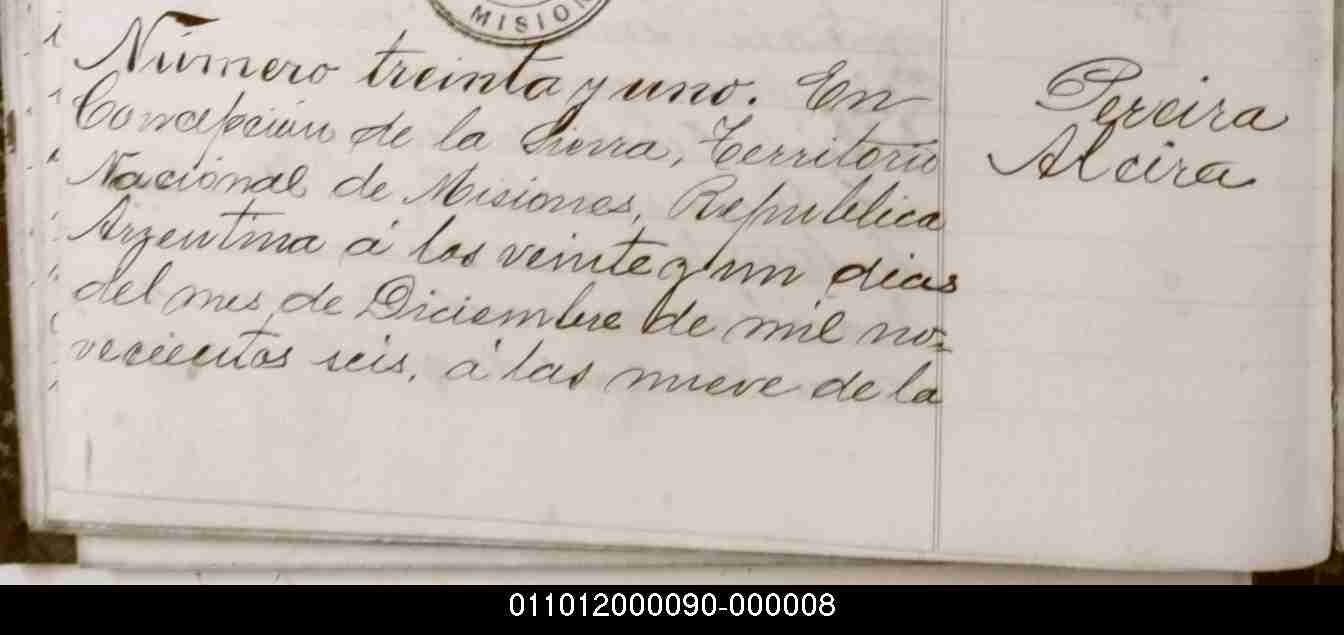 MISION
Número treinta y uno. En
Concepción de la Sierra, Territorio
Nacional de Misiones, Republica
Argentina á los veinte y un dias
del mes de Diciembre de mil no=
vecientos seis, á las nueve de la
Pereira
Alcira
011012000090-000008